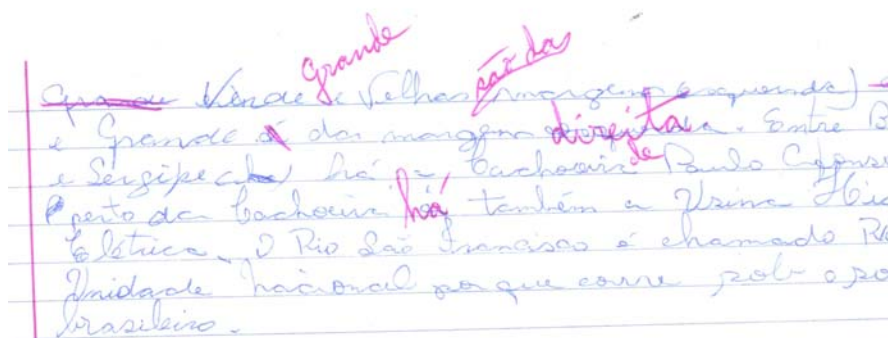 grande são da
Grande Verde e Velhas (margem esquerda) e
e Grande é da margem direita. Entre B
e Sergipe há a Cachoeira de Paulo Afonso
Perto da Cachoeira há também a Usina Hid
Elétrica. O Rio São Francisco é chamado R
Unidade Nacional porque corre sob o so
brasileiro.